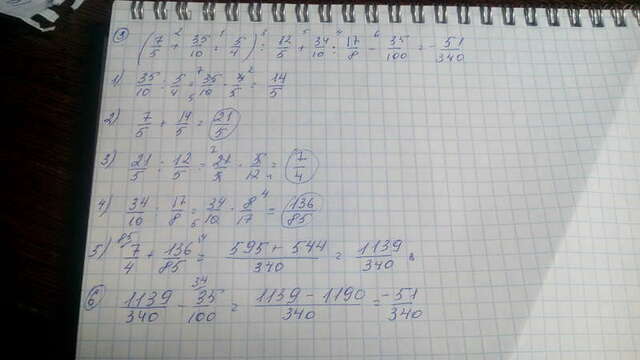 9) (7/5 + 35/10 : 5/4) : 12/5 + 34/10 : 17/8 - 35/100 = -51/340
1) 35/10 : 5/4 = 35/10 · 4/5 = 14/5
2) 7/5 + 14/5 = 21/5
3) 21/5 : 12/5 = 21/5 · 5/12 = 7/4
4) 34/10 : 17/8 = 34/10 · 8/17 = 136/85
5) 7/4 + 136/85 = 595 + 544/340 = 1139/340
6) 1139/340 - 35/100 = 1139 - 1190/340 = -51/340